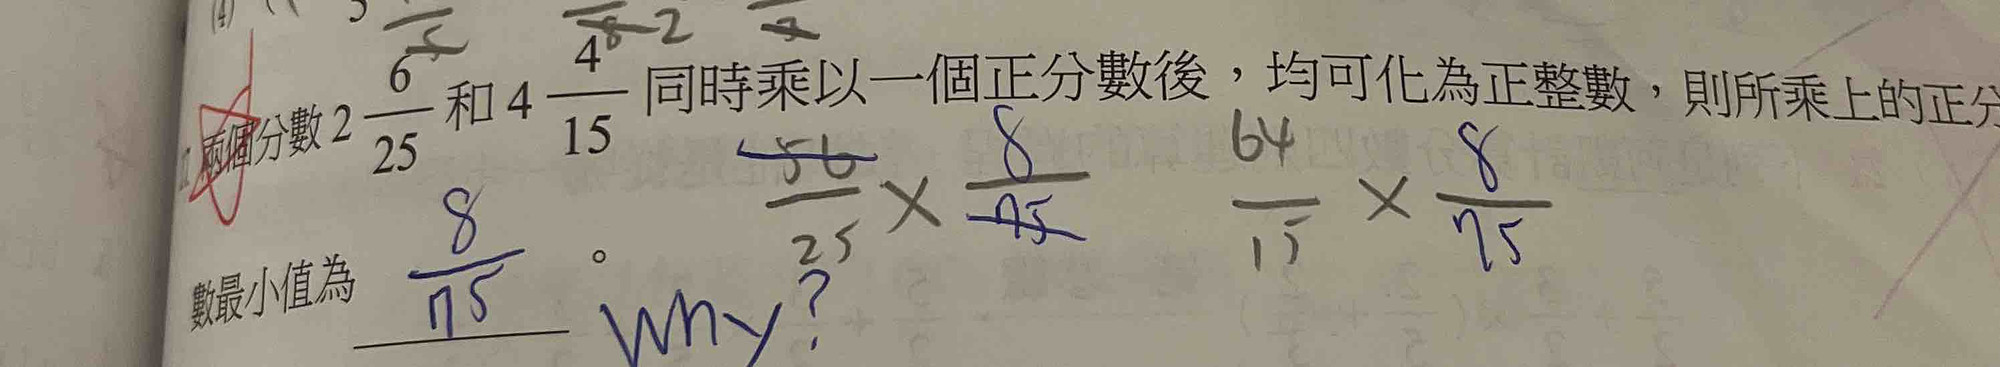 (4)
兩個分數 2 6/25 和 4 4/15 同時乘以一個正分數後，均可化為正整數，則所乘上的正分
56/25 × 8/75 64/15 × 8/75
數最小值為 8/75 。 Why?